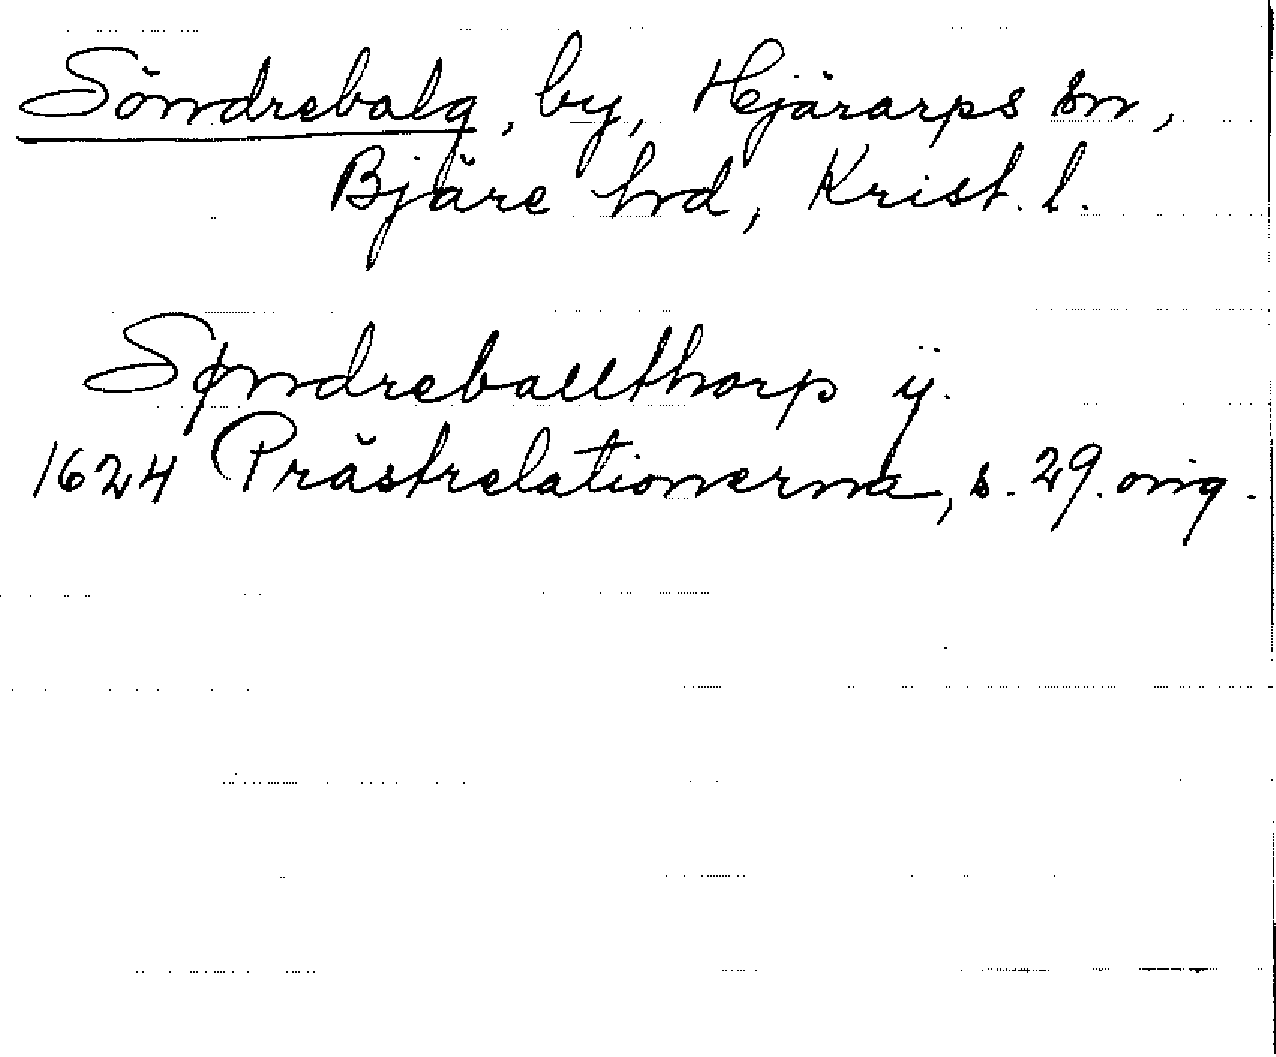 Söndrebalg, by, Hjärarps sn,
Bjäre hrd, Krist. l.
Spndreballthorp ÿ.
1624 Prästrelationerna, s. 29. orig.